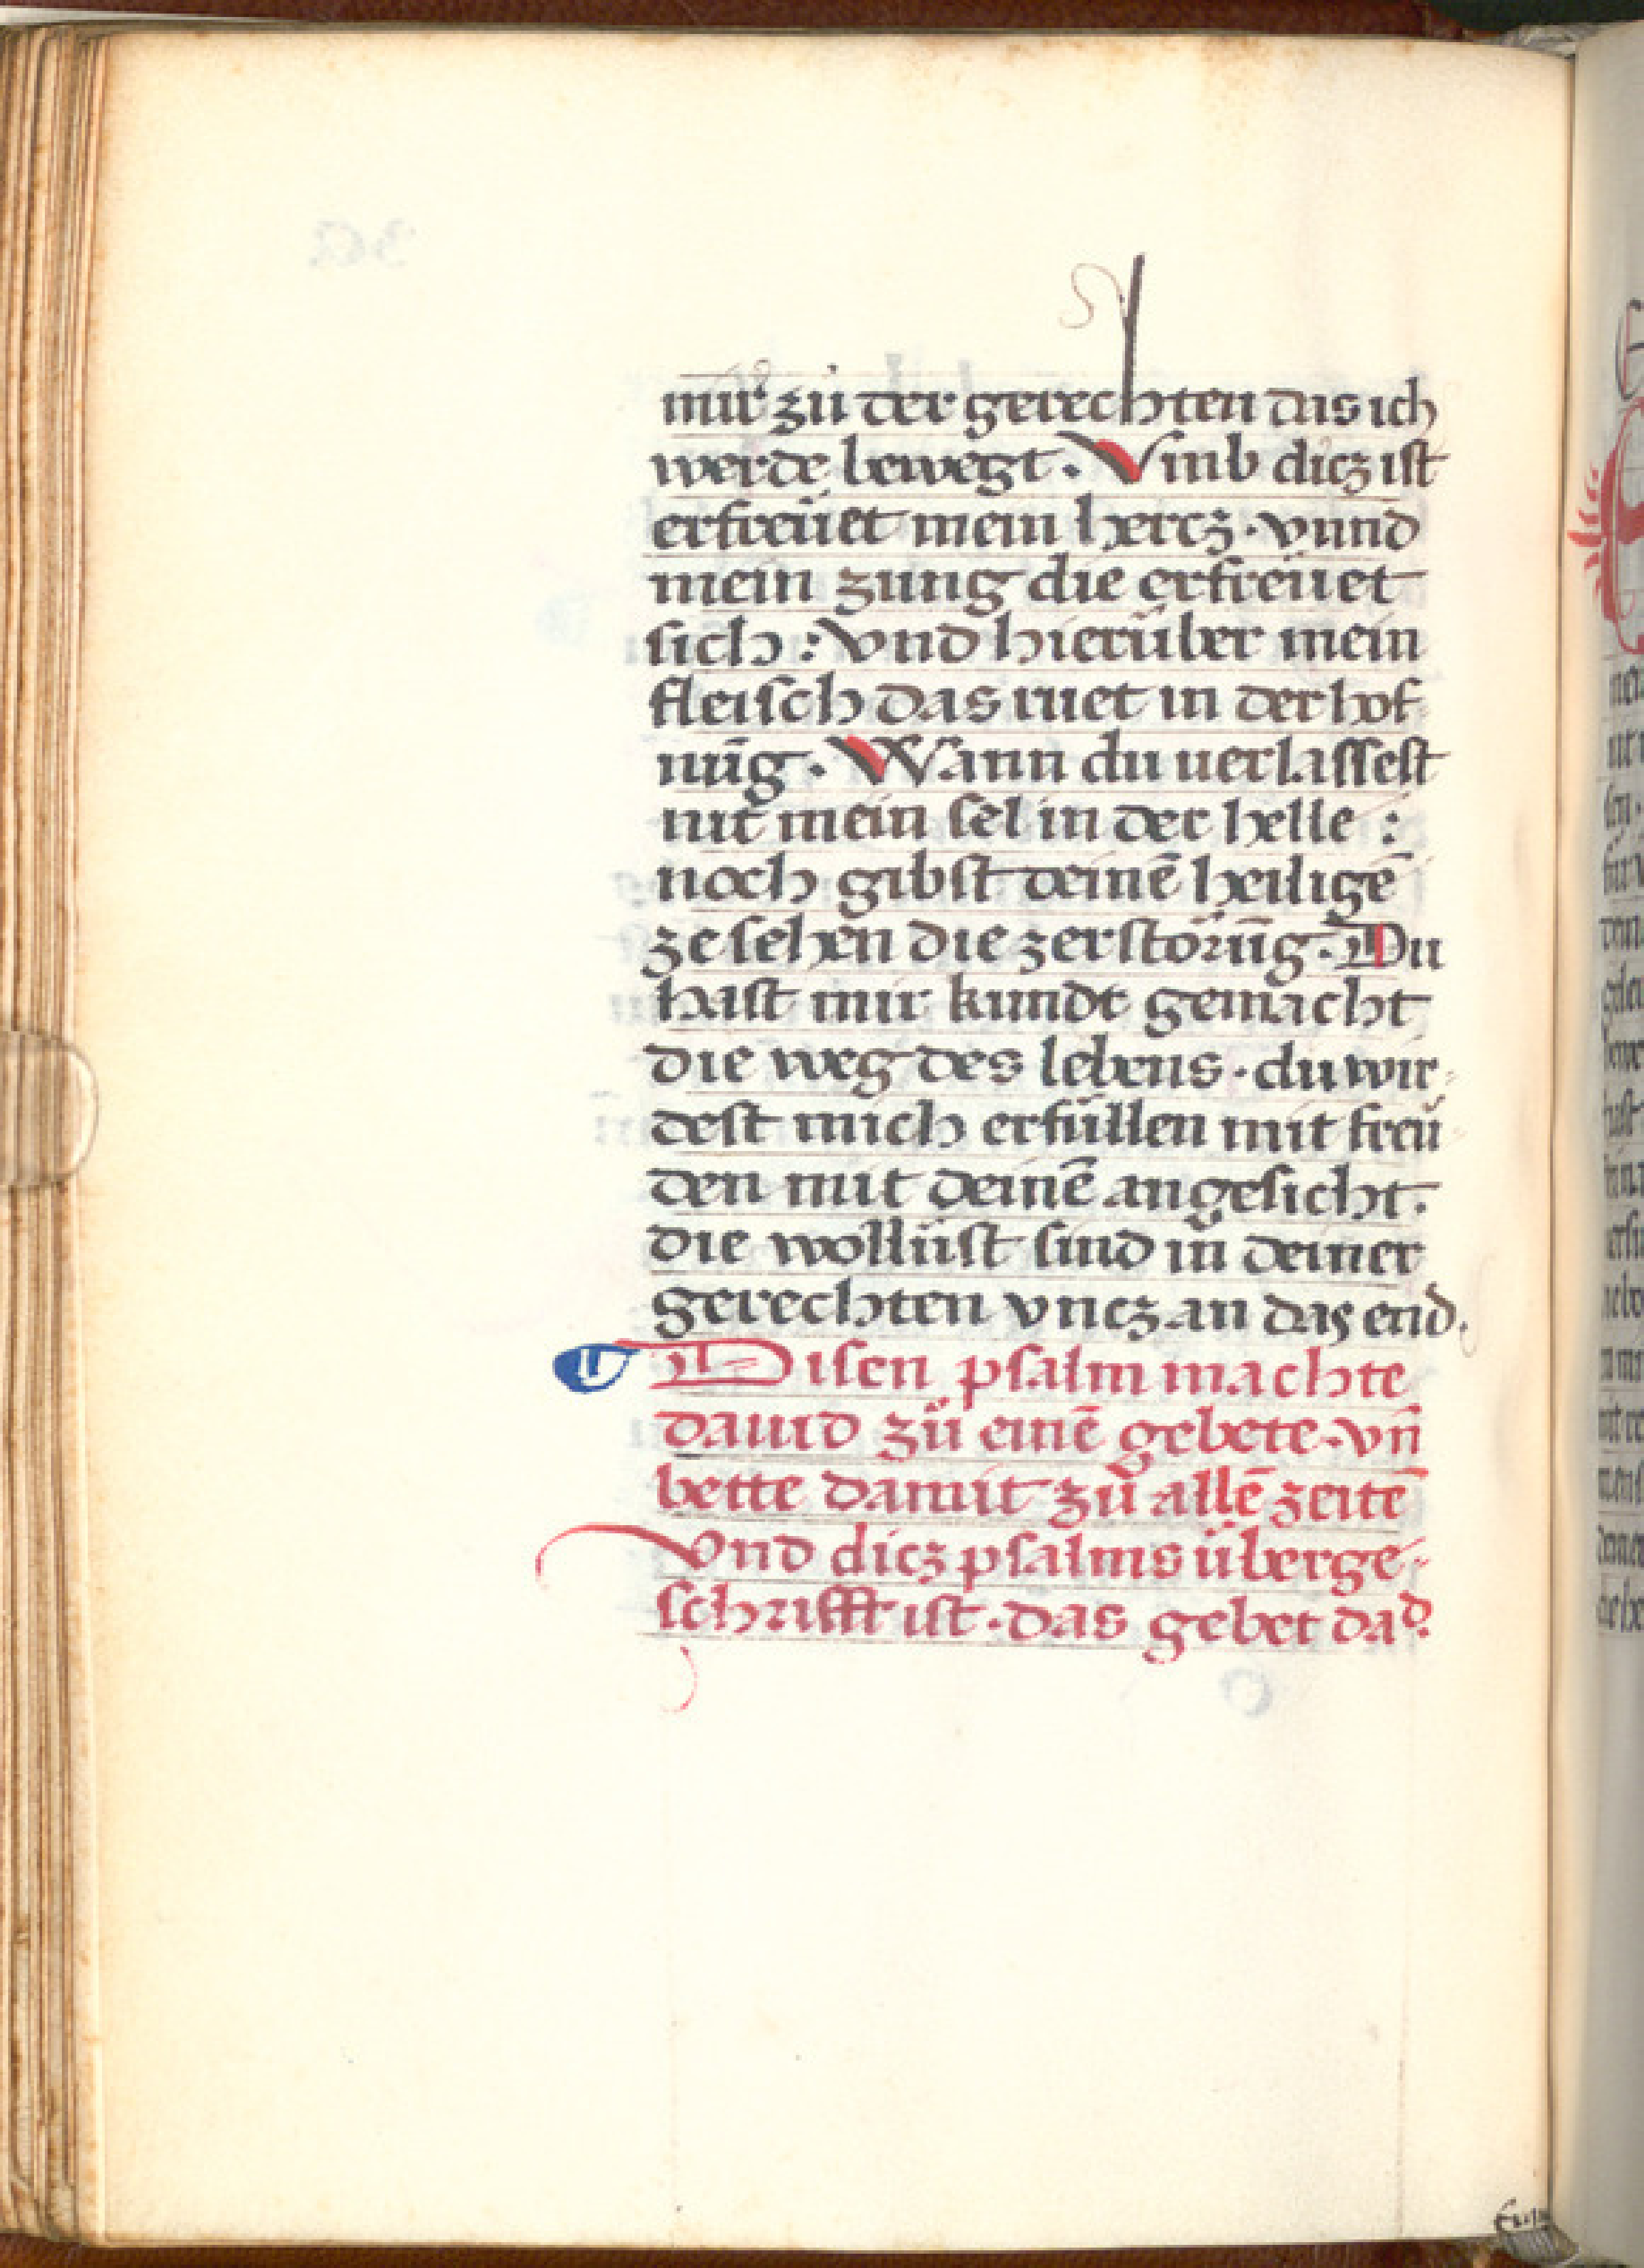 mir zů der gerechten das ich
werde bewegt · Vmb dicz ist
erfreüet mein hercz · vnnd
mein zung die erfreüet
sich : vnd hierüber mein
fleisch das ruet in der hof
nūg · Wann du uerlassest
nit mein sel in der helle :
noch gibst deinē heiligē
ze sehen die zerstörūg · Du
hast mir kundt gemacht
die weg des lebens · du wir-
dest mich erfüllen mit freü-
den mit deinē angesicht ·
die wollüst sind in deiner
gerechten vncz an das end ·
Disen psalm machte
dauid zü einē gebete · vn̄
bette damit zů allē zeitē
Vnd dicz psalms überge-
schrifft ist · das gebet dad·